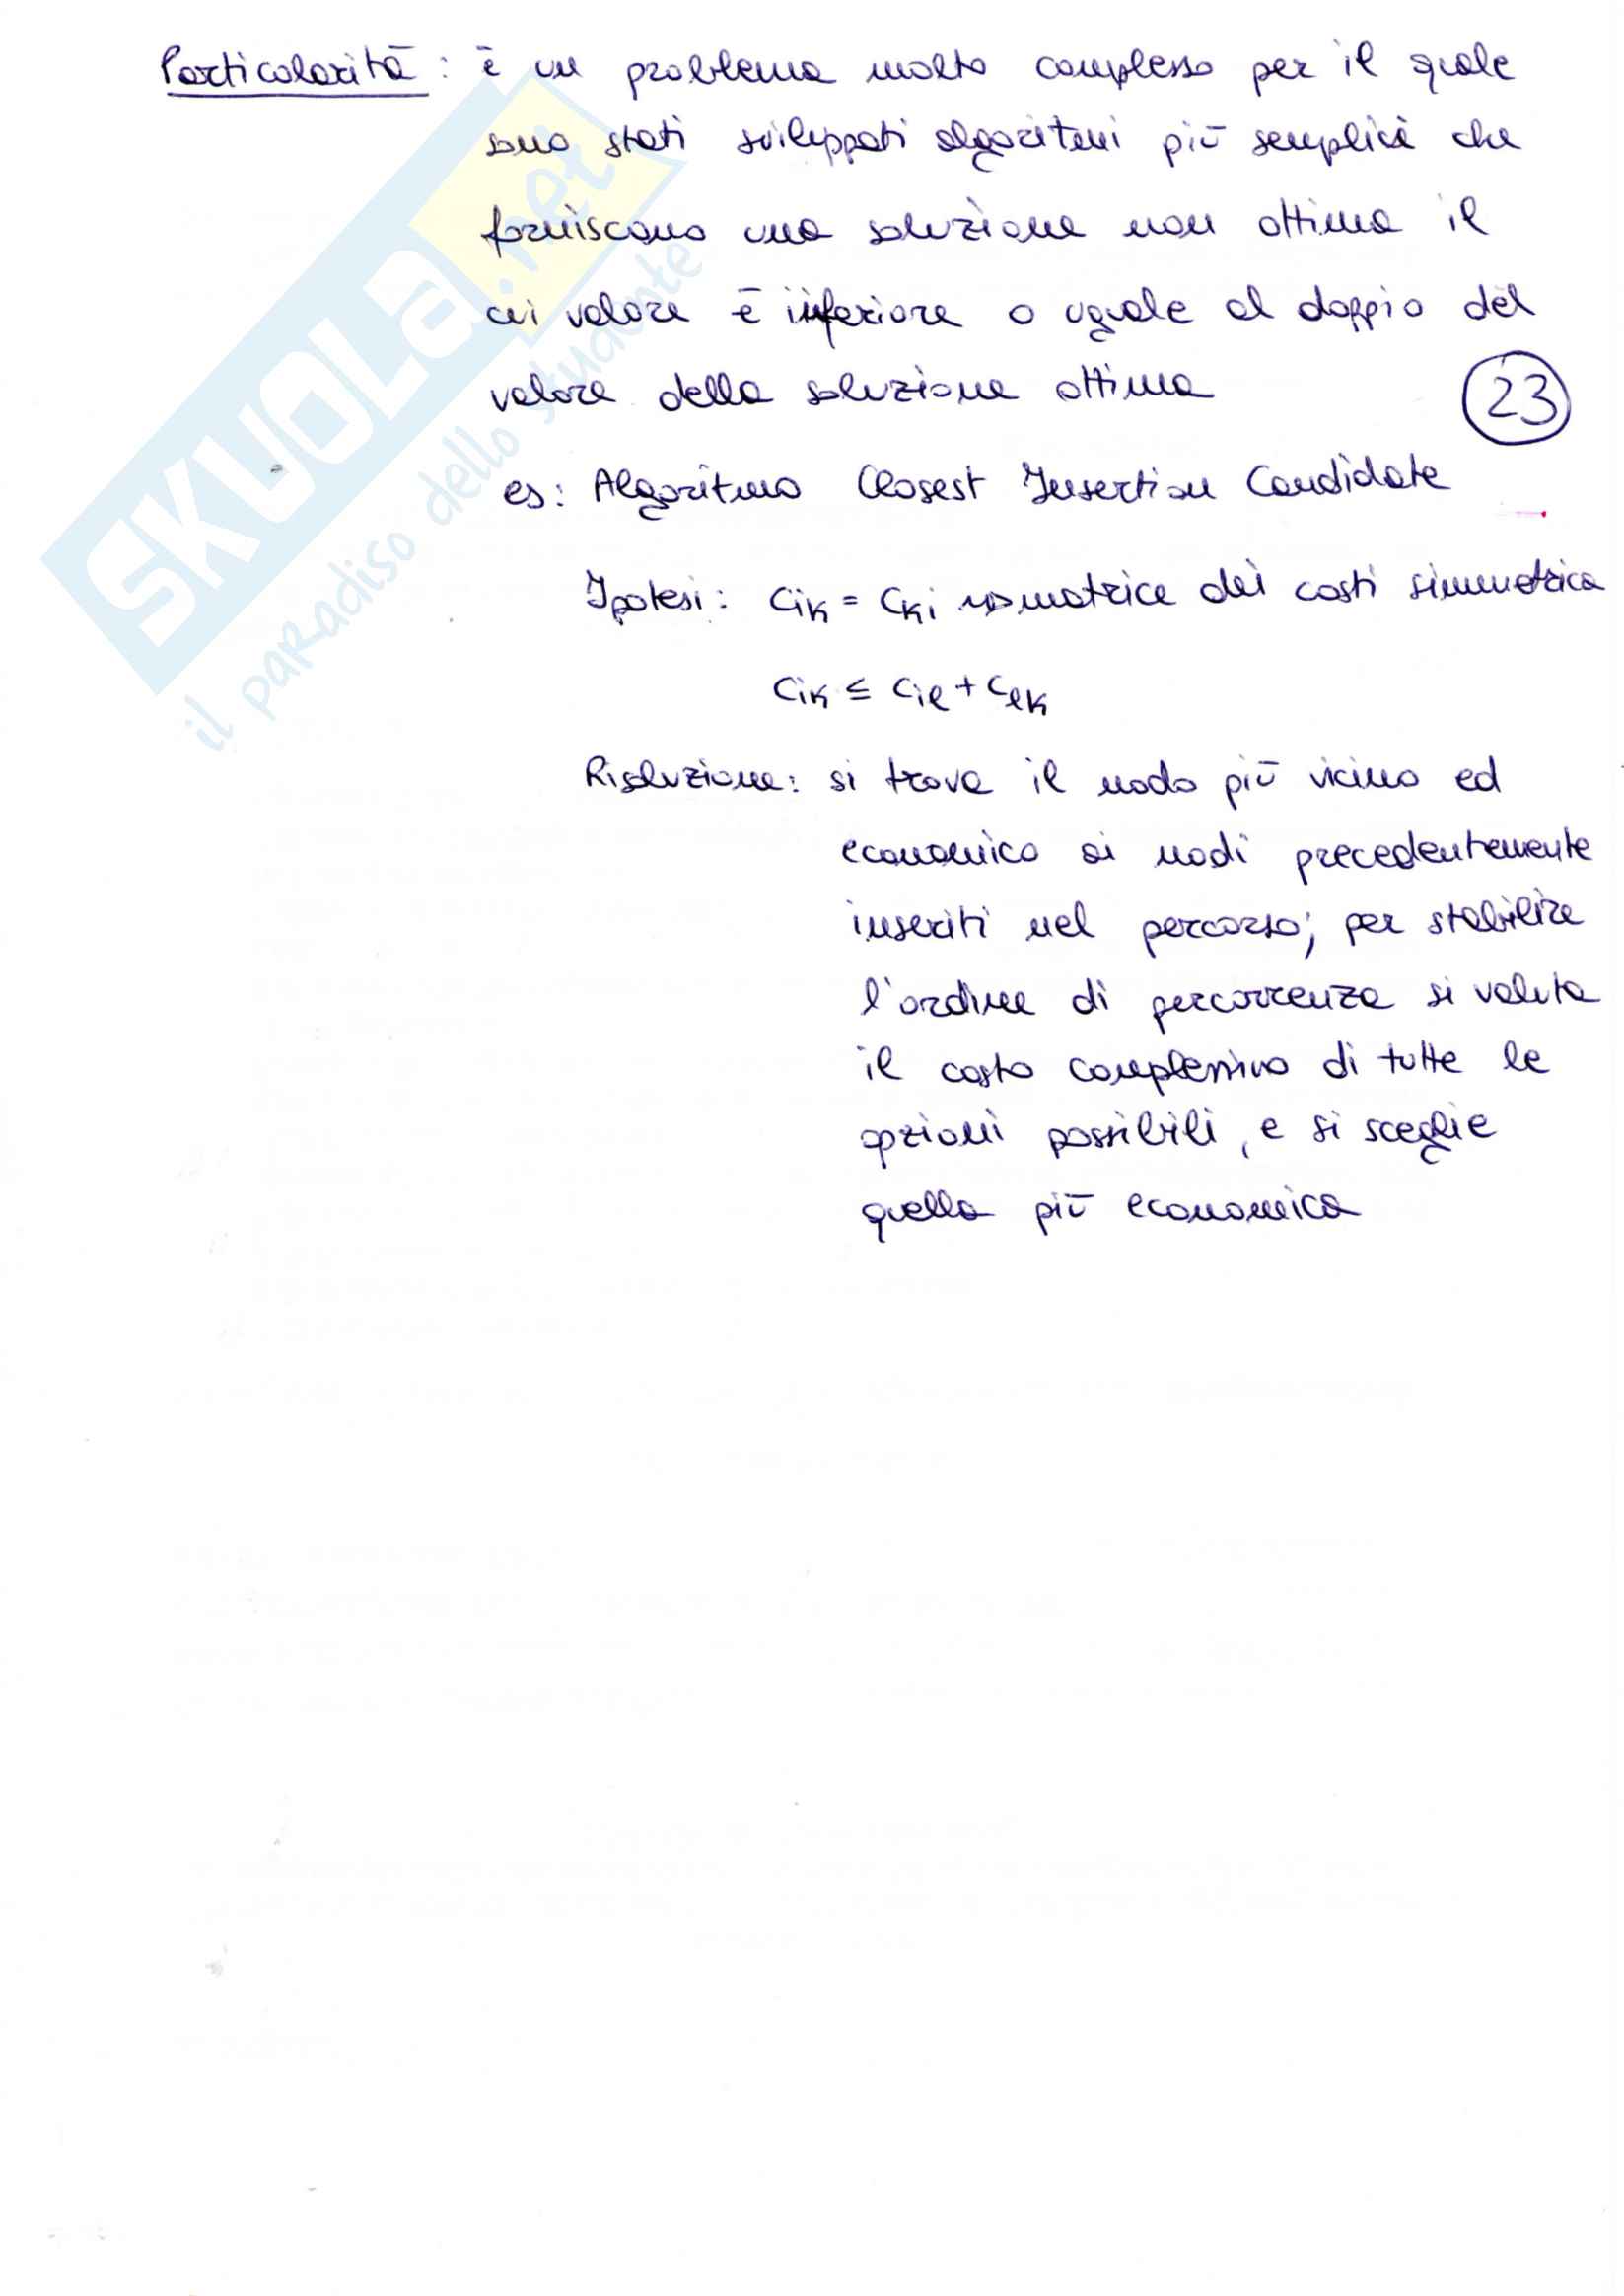 Particolarità: è un problema molto complesso per il quale
sono stati sviluppati algoritmi più semplici che
forniscono una soluzione non ottima il
cui valore è inferiore o uguale al doppio del
valore della soluzione ottima
23
es: Algoritmo Closest Insertion Candidate
Ipotesi: cik = cki => matrice dei costi simmetrica
cik ≤ cil + clk
Risoluzione: si trova il nodo più vicino ed
economico ai nodi precedentemente
inseriti nel percorso; per stabilire
l'ordine di percorrenza si valuta
il costo complessivo di tutte le
opzioni possibili, e si sceglie
quella più economica
SKUOLA.net
il paradiso dello studente